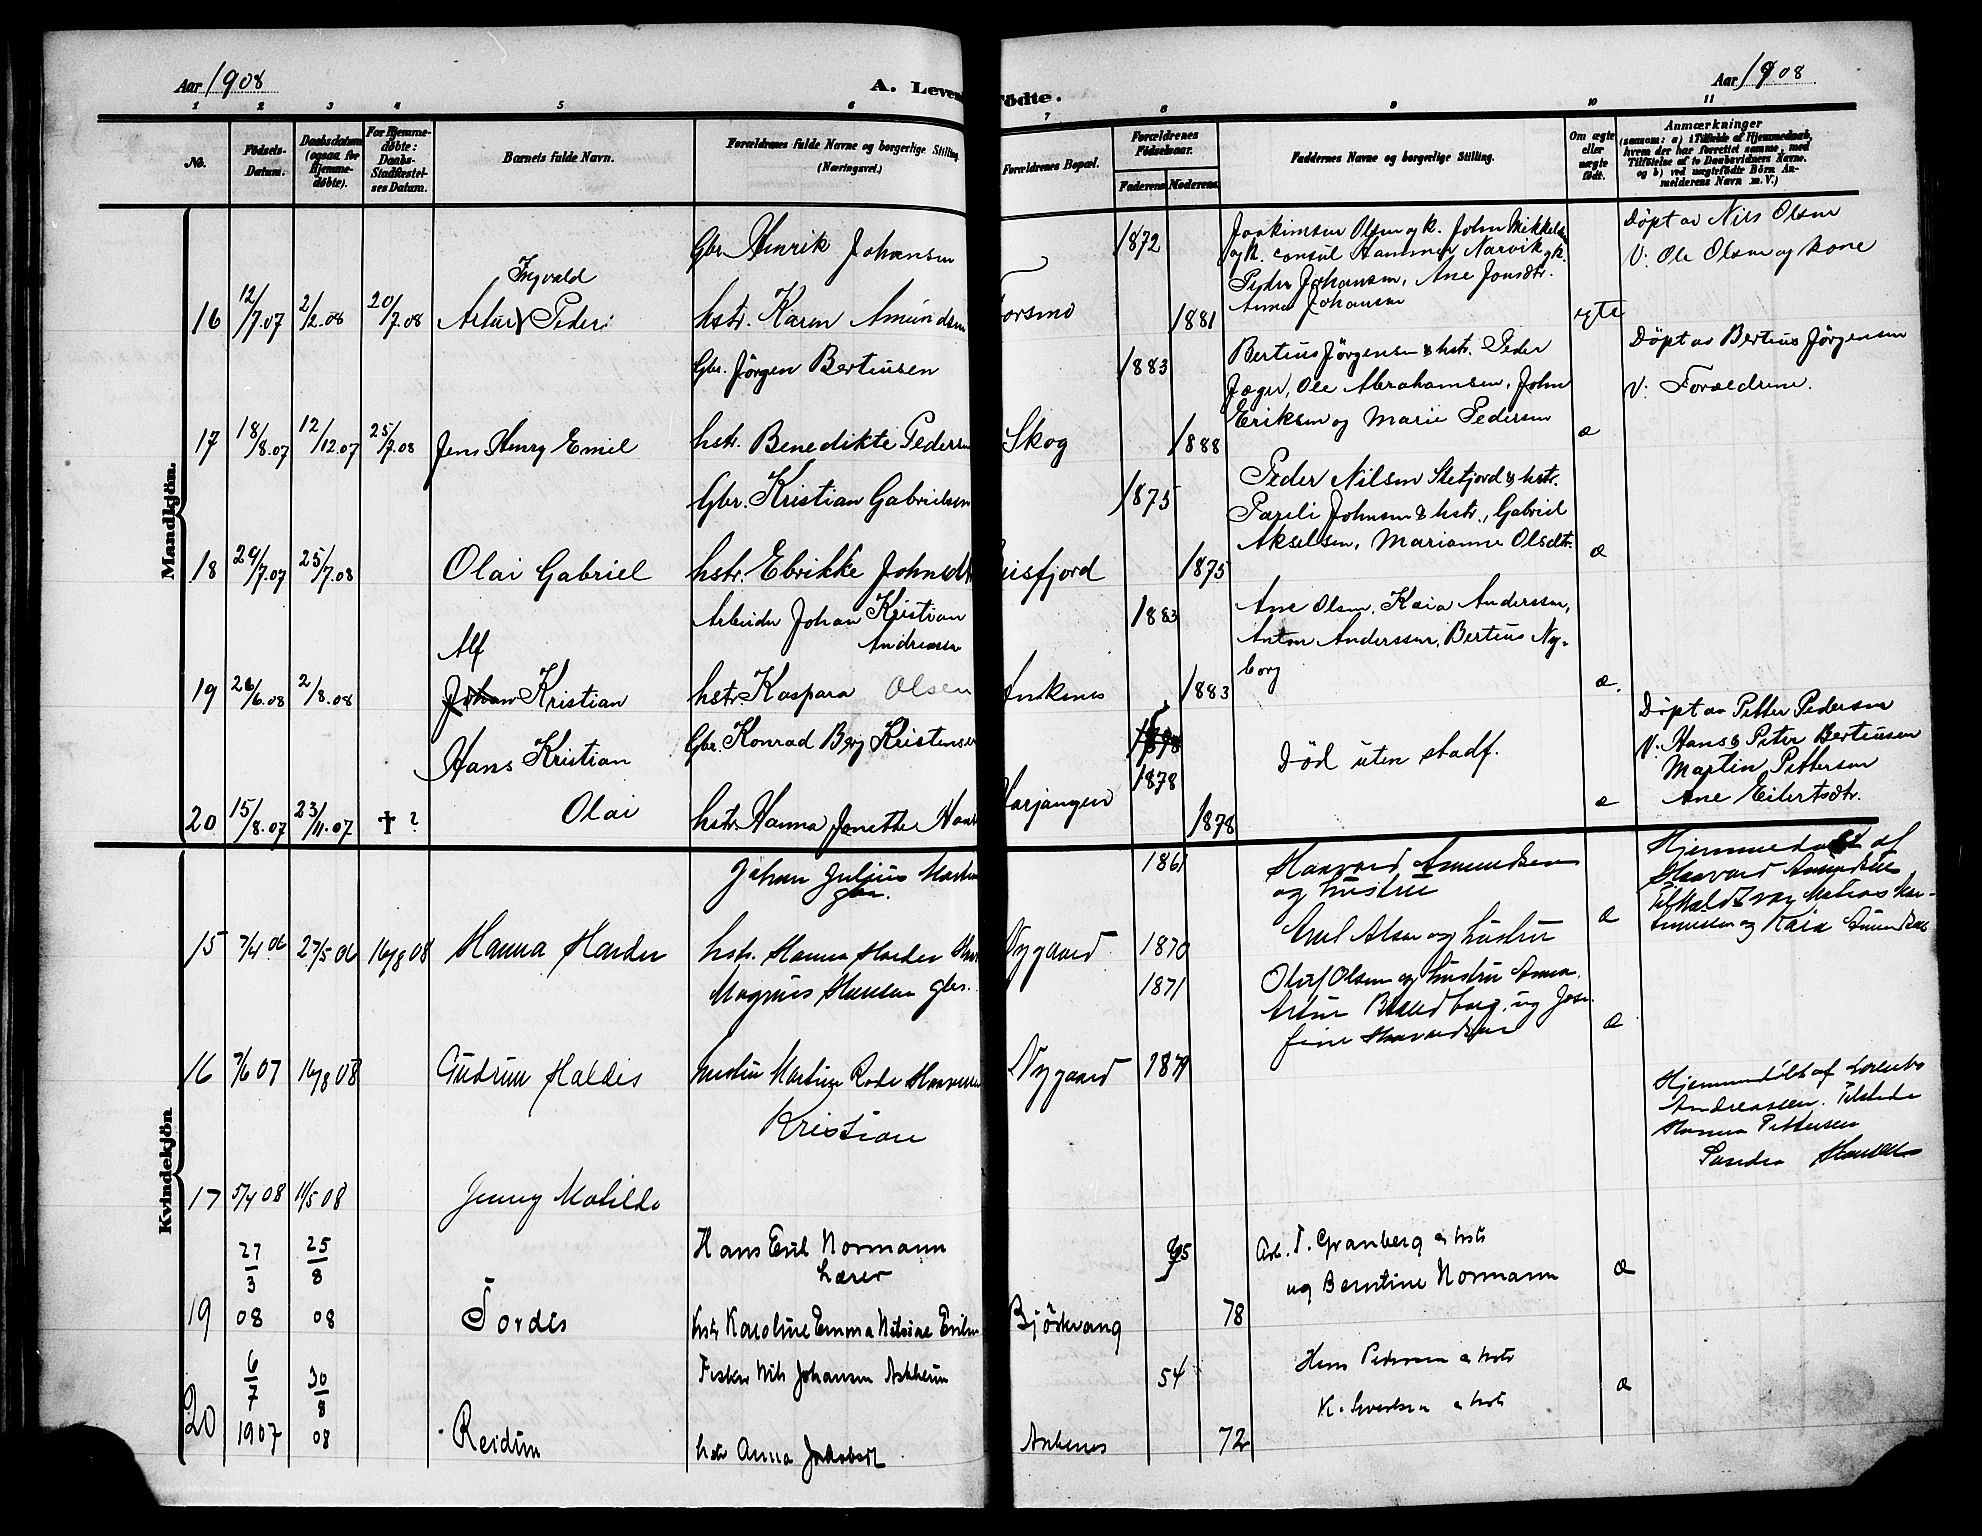 Aar 1908
A. Levende
Fødte.
Aar 1908
1 2 3 4 5 6 7 8 9 10 11
No.
Födsels-
Datum.
Daabsdatum
(ogsaa for
Hjemme-
döbte).
For Hjemme-
döbte:
Daabs-
Stadfæstel-
ses Datum.
Barnets fulde Navn.
Forældrenes fulde Navne og borgerlige Stilling
(Næringsvei.)
Forældrenes Bopæl.
Forældrenes
Födselsaar.
Faderens Moderens
Faddernes Navne og borgerlige Stilling.
Om ægte
eller
uægte
födt.
Anmærkninger
(saasom: a) i Tilfælde af Hjemmedaab,
hvem der har forrettet samme, med
Tilföielse af to Daabsvidners Navne,
og b) ved uægtefödte Börn An-
melderens Navn m. V.)
Mandkjön.
16 12/7.07 2/2.08 20/7.08
Ingvald
Artur Peder
Gbr. Henrik Johansen
hstr. Karen Amundsen
Forsmo
1872
1881
Joakimsen Olsen gk. John Mikkelsen
gk. consul Hammer Narvik gk.
Peder Johansen, Ane Jonsdtr.
Anna Johansen
egte
Døpt av Nils Olsen
V: Ole Olsen og kone
17 18/8.07 12/12.07 25/7.08
Jens Henry Emil
Gbr. Jörgen Bertiusen
hstr. Benedikte Pedersen
Skog
1883
1888
Bertius Jörgensen & hstr. Peder
Jæger, Ole Abrahamsen, John
Eriksen og Marie Pedersen
æ
Døpt av Bertius Jörgensen
V: Forældrene.
18 29/7.07 25/7.08
Olai Gabriel
Gbr. Kristian Gabrielsen
hstr. Ebrikke Johnsdt
eisfjord
1875
1875
Peder Nilsen Skefjord & hstr.
Pareli Johnsen & hstr., Gabriel
Akselsen, Marianne Olsdtr.
æ
19 26/6.08 2/8.08
Alf
Johan Kristian
Arbeider Johan Kristian
Andreassen
hstr. Kaspara Olsen
Ankenes
1883
1883
Ane Olsen, Kaia Anderssen,
Anton Anderssen, Bertius Ny-
borg
æ.
20 15/8.07 23/11.07 † ?
Hans Kristian
Olai
Gbr. Konrad Berg Kristensen
hstr. Hanna Jonette Hans
Harjangen
1878
1878
Død uten stadf.
æ
Døpt av Petter Pedersen
V: Hans & Peter Bertiusen
Martin Pettersen
Ane Eilertsdtr.
Kvindekjön
15 7/4 06 27/5 06 16/8 08
Hanna Hander
Johan Julius
gbr.
hstr. Hanna
Nygaard
1861
1870
Haavard Amundsen
og hustru
Emil Olsen og hustru
æ
Hjemmedøbt af
Haavard Amundsen
og Kaia Amundsen
16 7/6 07 16/8 08
Gudrun Haldis
Magnus Hansen gbr.
hustru Martine
Nygaard
1871
1879
Oluf Olsen og hustru Anna,
Artur Brandborg, og Jose-
fine Haavardsen
æ
17 5/4 08 11/5 08
Jenny Matilde
Kristian
Hjemmedöbt af
Andreassen.
Hanna Pettersen
Hansen
19 27/3 08 25/8 08
Tordis
Hans Emil Normann
Lærer
hstr Karoline Emma
Bjørkvang
75
78
Arb. T. Granberg & hstr
og Berntine Normann
æ
20 6/7 1907 30/8 08
Reidun
Fisker Nils Johansen
hstr Anna Jakobsdt
Ankenes
54
72
Hans Pedersen & hstr
K. Sivertsen & hstr
æ